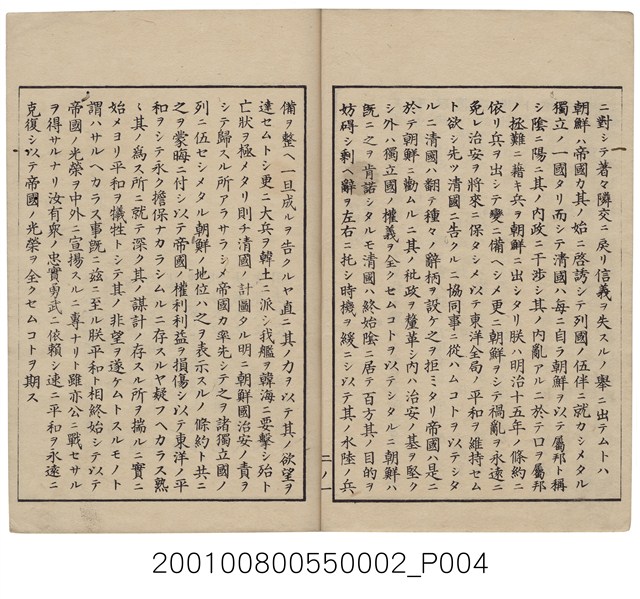 ニ對シテ著々隣交ニ戾リ信義ヲ失スルノ擧ニ出テムトハ
朝鮮ハ帝國カ其ノ始ニ啓誘シテ列國ノ伍伴ニ就カシメタル
獨立ノ一國タリ而シテ淸國ハ每ニ自ラ朝鮮ヲ以テ屬邦ト稱
シ陰ニ陽ニ其ノ內政ニ干涉シ其ノ內亂アルニ於テ口ヲ屬邦
ノ拯難ニ籍キ兵ヲ朝鮮ニ出シタリ朕ハ明治十五年ノ條約ニ
依リ兵ヲ出シテ變ニ備ヘシメ更ニ朝鮮ヲシテ禍亂ヲ永遠ニ
免レ治安ヲ將來ニ保タシメ以テ東洋全局ノ平和ヲ維持セム
ト欲シ先ツ淸國ニ告クルニ協同事ニ從ハムコトヲ以テシタ
ルニ淸國ハ翻テ種々ノ辭柄ヲ設ケ之ヲ拒ミタリ帝國ハ是ニ
於テ朝鮮ニ勸ムルニ其ノ秕政ヲ釐革シ內ハ治安ノ基ヲ堅ク
シ外ハ獨立國ノ權義ヲ全クセムコトヲ以テシタルニ朝鮮ハ
旣ニ之ヲ肯諾シタルモ淸國ハ終始陰ニ居テ百方其ノ目的ヲ
妨碍シ剩ヘ辭ヲ左右ニ托シ時機ヲ緩ニシ以テ其ノ水陸ノ兵
二ノ一
備ヲ整ヘ一旦成ルヲ告クルヤ直ニ其ノ力ヲ以テ其ノ欲望ヲ
達セムトシ更ニ大兵ヲ韓土ニ派シ我艦ヲ韓海ニ要擊シ殆ト
亡狀ヲ極メタリ則チ淸國ノ計圖タル明ニ朝鮮國治安ノ責ヲ
シテ歸スル所アラサラシメ帝國カ率先シテ之ヲ諸獨立國ノ
列ニ伍セシメタル朝鮮ノ地位ハ之ヲ表示スルノ條約ト共ニ
之ヲ蒙晦ニ付シ以テ帝國ノ權利利益ヲ損傷シ以テ東洋ノ平
和ヲシテ永ク擔保ナカラシムルニ存スルヤ疑フヘカラス熟
々其ノ爲ス所ニ就テ深ク其ノ謀計ノ存スル所ヲ揣ルニ實ニ
始メヨリ平和ヲ犧牲トシテ其ノ非望ヲ遂ケムトスルモノト
謂ハサルヘカラス事旣ニ玆ニ至ル朕平和ト相終始シテ以テ
帝國ノ光榮ヲ中外ニ宣揚スルニ專ナリト雖亦公ニ戰セサル
ヲ得サルナリ汝有衆ノ忠實勇武ニ依賴シ速ニ平和ヲ永遠ニ
克復シ以テ帝國ノ光榮ヲ全クセムコトヲ期ス
200100800550002_P004